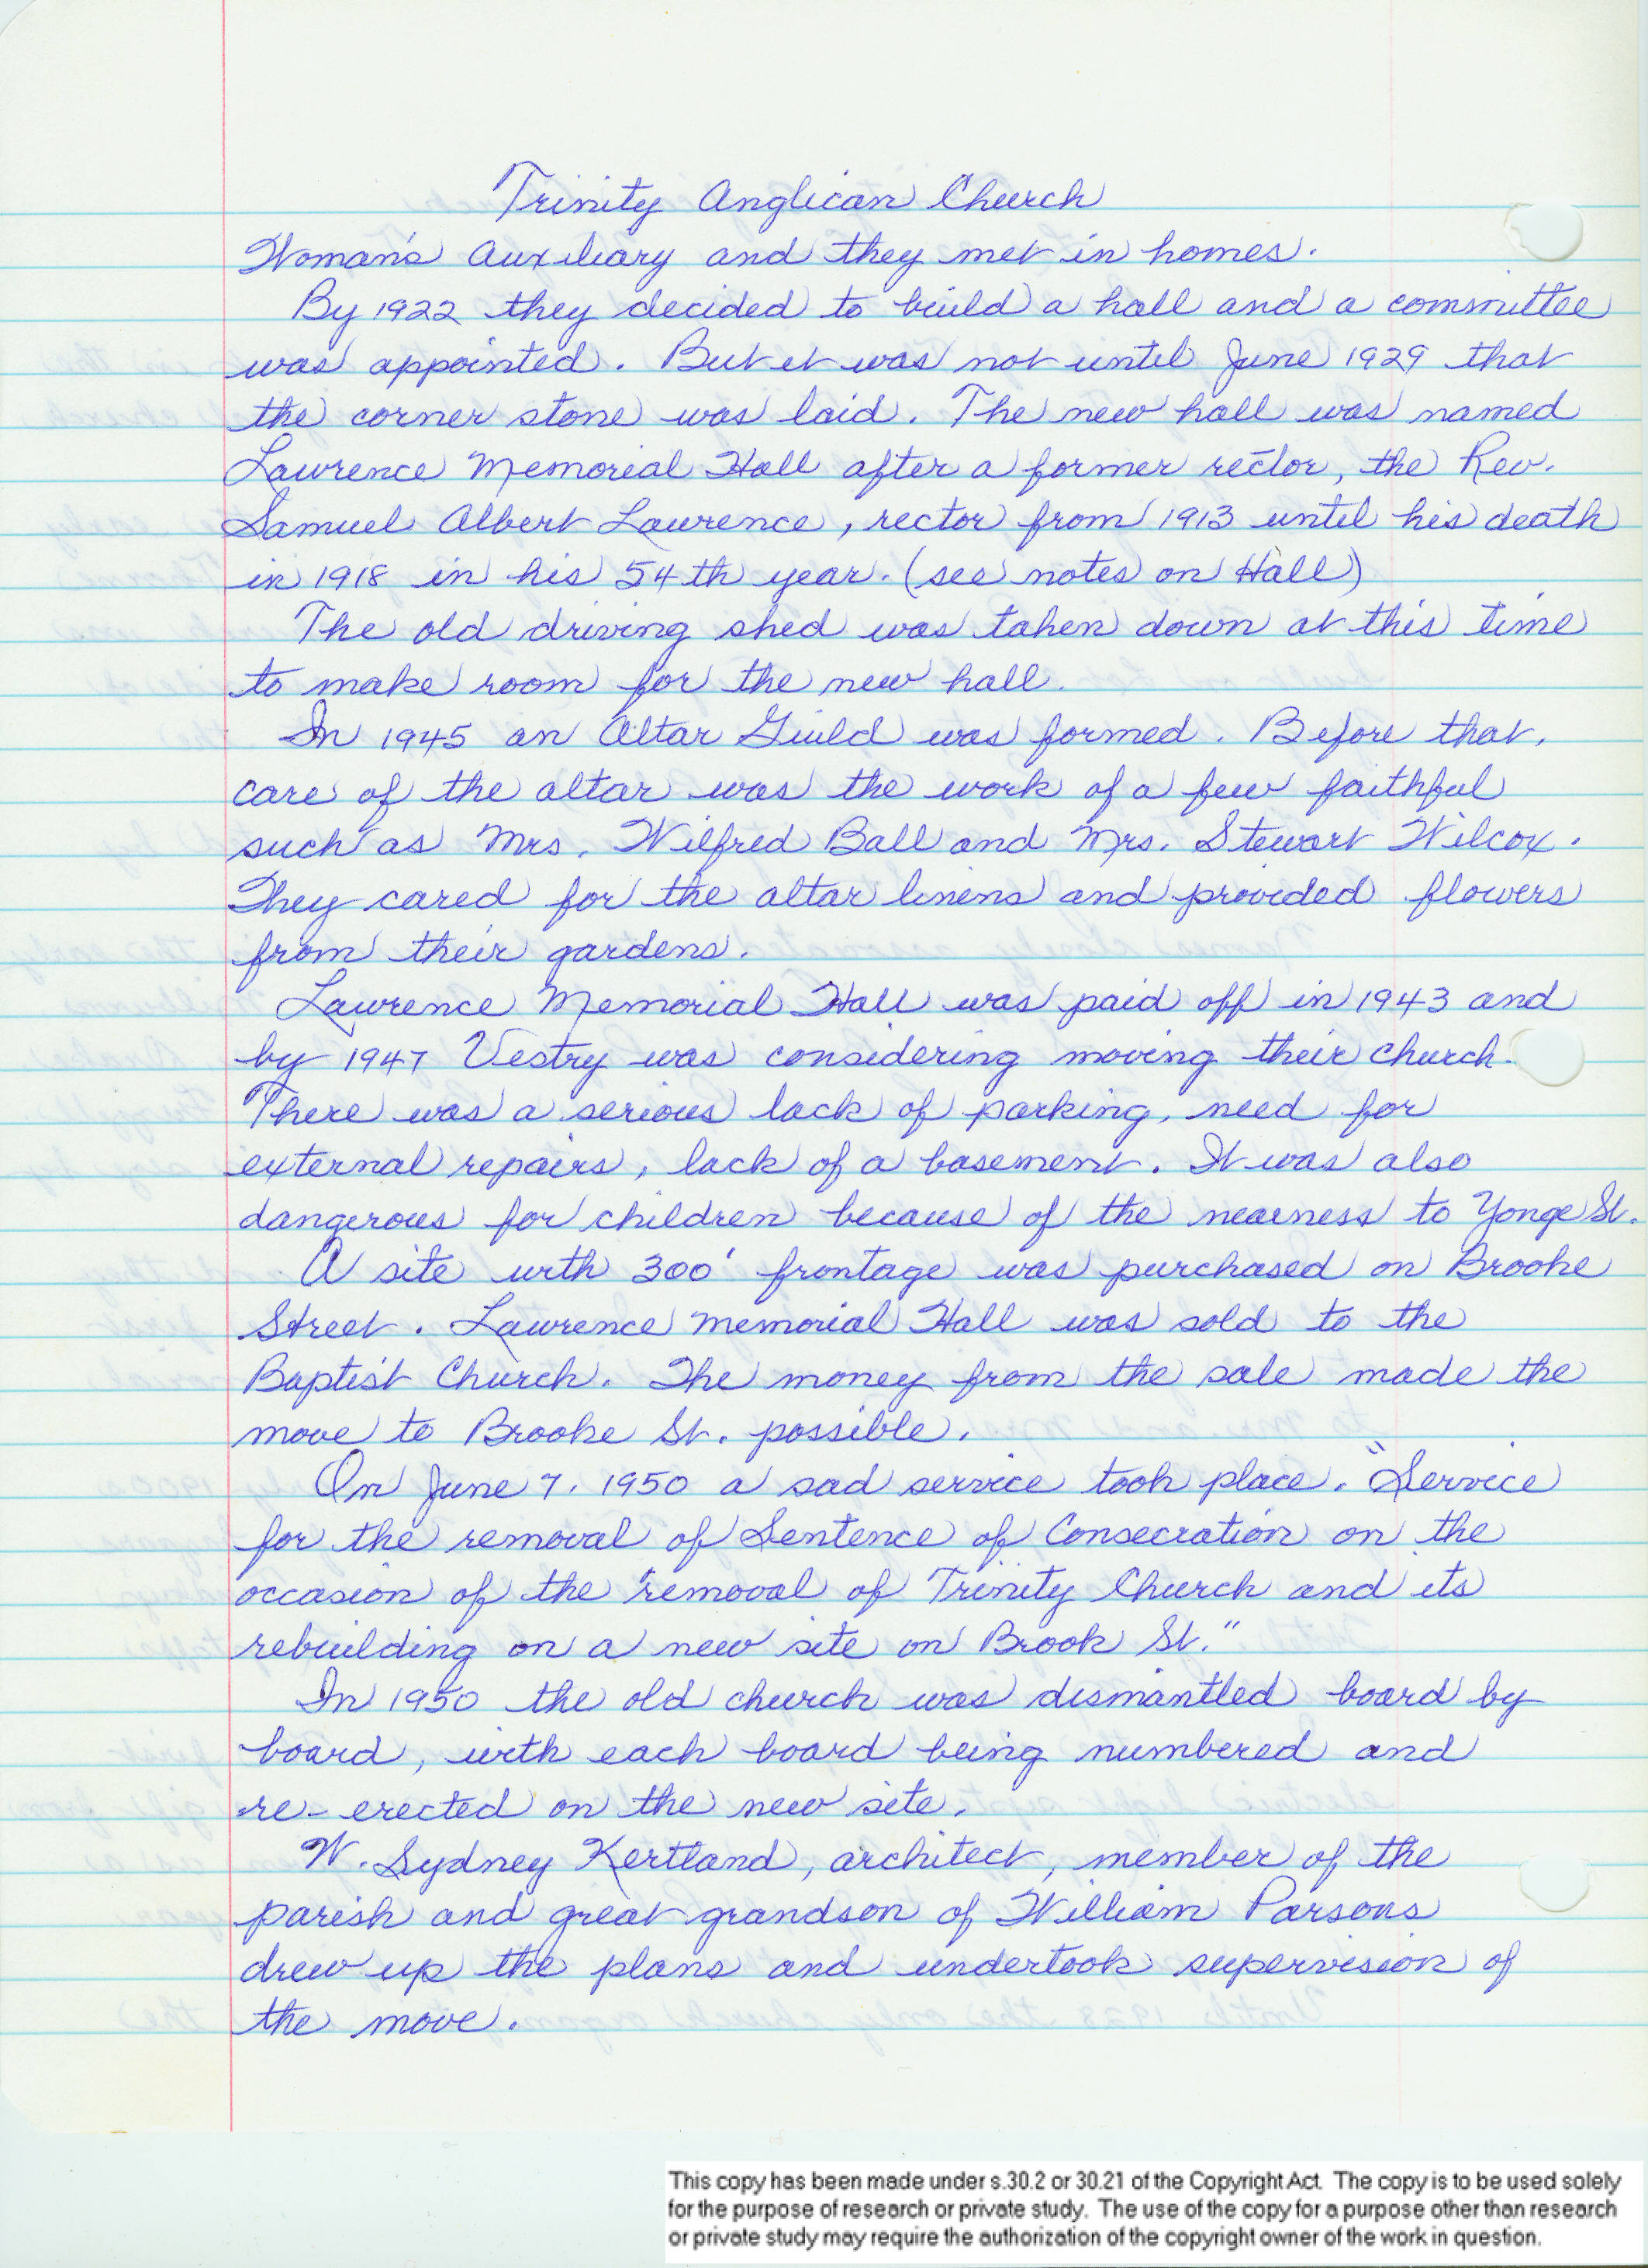 Trinity Anglican Church
Woman's Auxiliary and they met in homes.
By 1922 they decided to build a hall and a committee
was appointed. But it was not until June 1929 that
the corner stone was laid. The new hall was named
Lawrence Memorial Hall after a former rector, the Rev.
Samuel Albert Lawrence, rector from 1913 until his death
in 1918 in his 54th year. (see notes on Hall)
The old driving shed was taken down at this time
to make room for the new hall.
In 1945 an Altar Guild was formed. Before that,
care of the altar was the work of a few faithful
such as Mrs. Wilfred Ball and Mrs. Stewart Wilcox.
They cared for the altar linens and provided flowers
from their gardens.
Lawrence Memorial Hall was paid off in 1943 and
by 1947 Vestry was considering moving their church.
There was a serious lack of parking, need for
external repairs, lack of a basement. It was also
dangerous for children because of the nearness to Yonge St.
A site with 300' frontage was purchased on Brooke
Street. Lawrence Memorial Hall was sold to the
Baptist Church. The money from the sale made the
move to Brooke St. possible.
On June 7, 1950 a sad service took place. "Service
for the removal of Sentence of Consecration on the
occasion of the removal of Trinity Church and its
rebuilding on a new site on Brook St."
In 1950 the old church was dismantled board by
board, with each board being numbered and
re-erected on the new site.
W. Sydney Kertland, architect, member of the
parish and great grandson of William Parsons
drew up the plans and undertook supervision of
the move.
This copy has been made under s.30.2 or 30.21 of the Copyright Act. The copy is to be used solely
for the purpose of research or private study. The use of the copy for a purpose other than research
or private study may require the authorization of the copyright owner of the work in question.